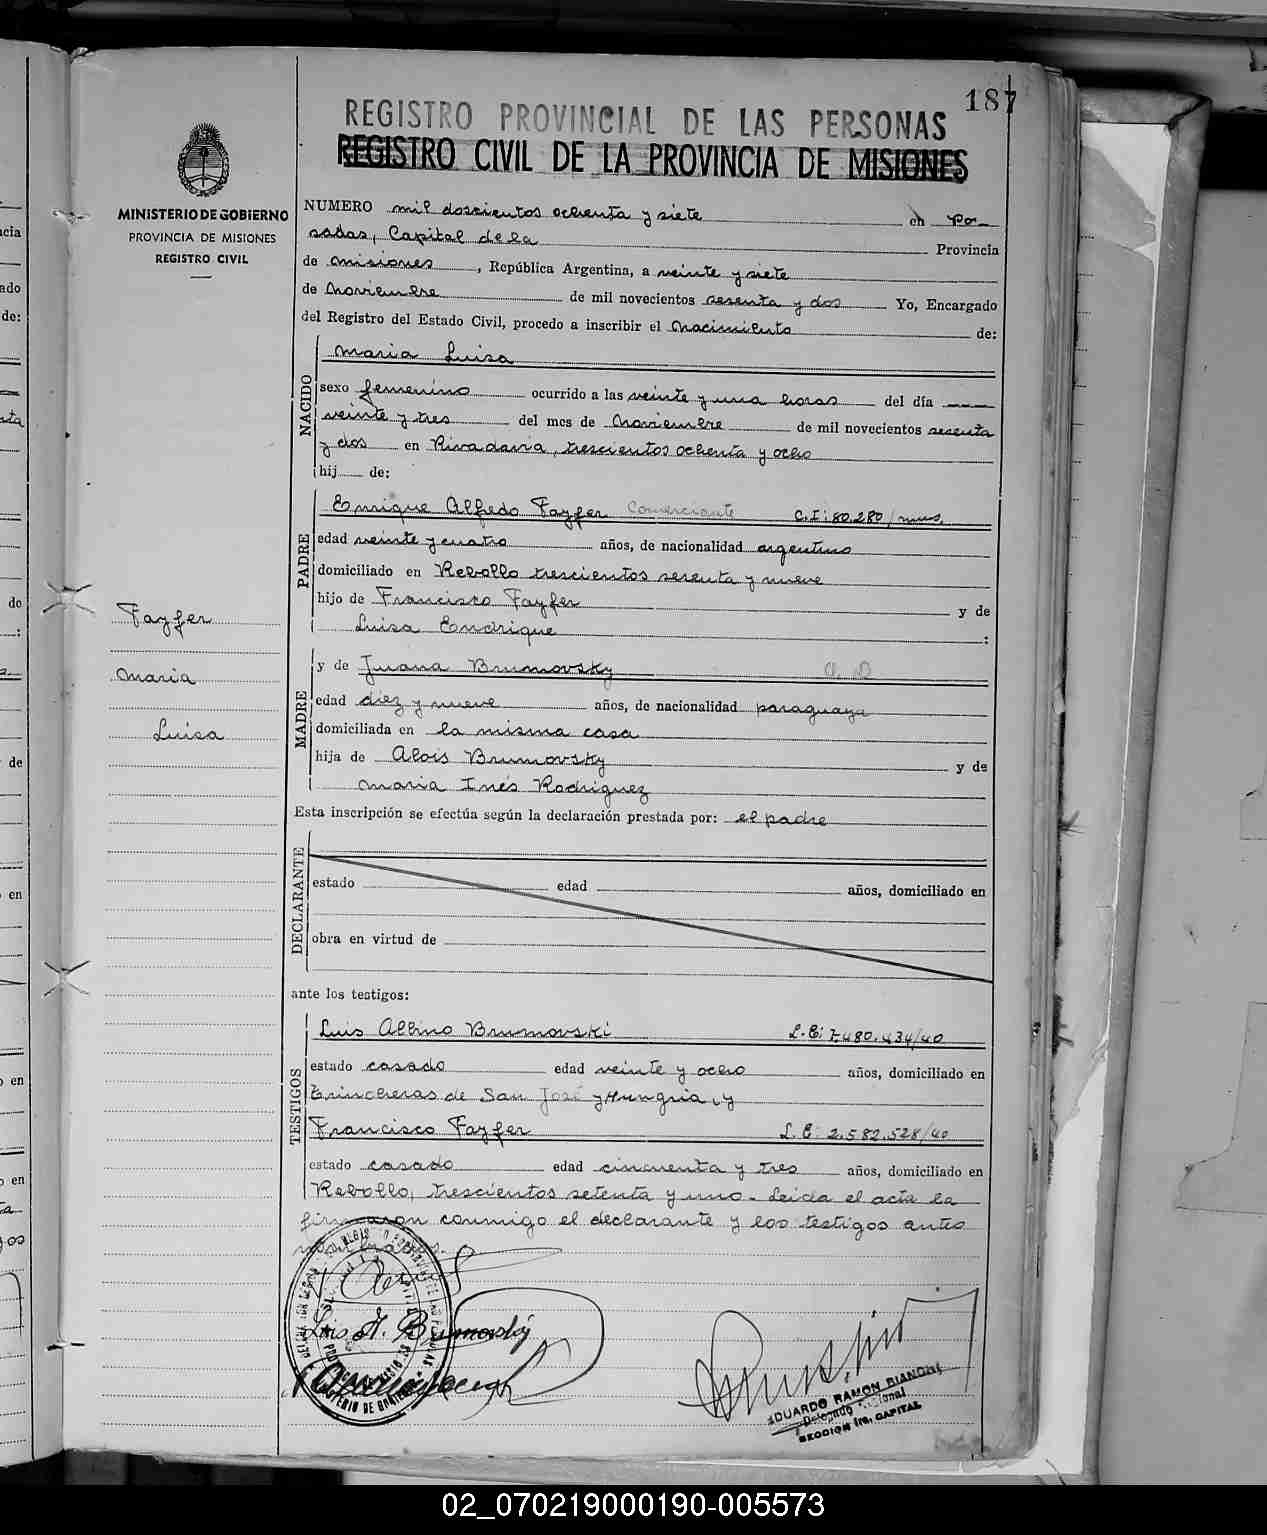 187
REGISTRO PROVINCIAL DE LAS PERSONAS
REGISTRO CIVIL DE LA PROVINCIA DE MISIONES
MINISTERIO DE GOBIERNO
PROVINCIA DE MISIONES
REGISTRO CIVIL
NUMERO mil doscientos ochenta y siete en Po-
sadas, Capital de la Provincia
de Misiones, República Argentina, a veinte y siete
de Noviembre de mil novecientos sesenta y dos Yo, Encargado
del Registro del Estado Civil, procedo a inscribir el Nacimiento de:
NACIDO
Maria Luisa
sexo femenino ocurrido a las veinte y una horas del día
veinte y tres del mes de Noviembre de mil novecientos sesenta
y dos en Rivadavia, trescientos ochenta y ocho
hij de:
PADRE
Enrique Alfredo Fayfer Comerciante C.I: 80.280/mnes.
edad veinte y cuatro años, de nacionalidad argentino
domiciliado en Rebollo trescientos sesenta y nueve
hijo de Francisco Fayfer y de
Luisa Endrique :
MADRE
y de Juana Brumovsky
edad diez y nueve años, de nacionalidad paraguaya
domiciliada en la misma casa
hija de Alois Brumovsky y de
Maria Inés Rodriguez
Fayfer
Maria
Luisa
Esta inscripción se efectúa según la declaración prestada por: el padre
DECLARANTE
estado edad años, domiciliado en
obra en virtud de
ante los testigos:
TESTIGOS
Luis Albino Brumovski L.E: 7.480.434/40
estado casado edad veinte y ocho años, domiciliado en
Trincheras de San José y Hungria, y
Francisco Fayfer L.E: 2.582.528/40
estado casado edad cincuenta y tres años, domiciliado en
Rebollo, trescientos setenta y uno.- Leida el acta la
firmaron conmigo el declarante y los testigos antes
nombrados.-
Luis A. Brumovsky
EDUARDO RAMON BIANCHI
Delegado
SECCION 1ra. CAPITAL
02_070219000190-005573